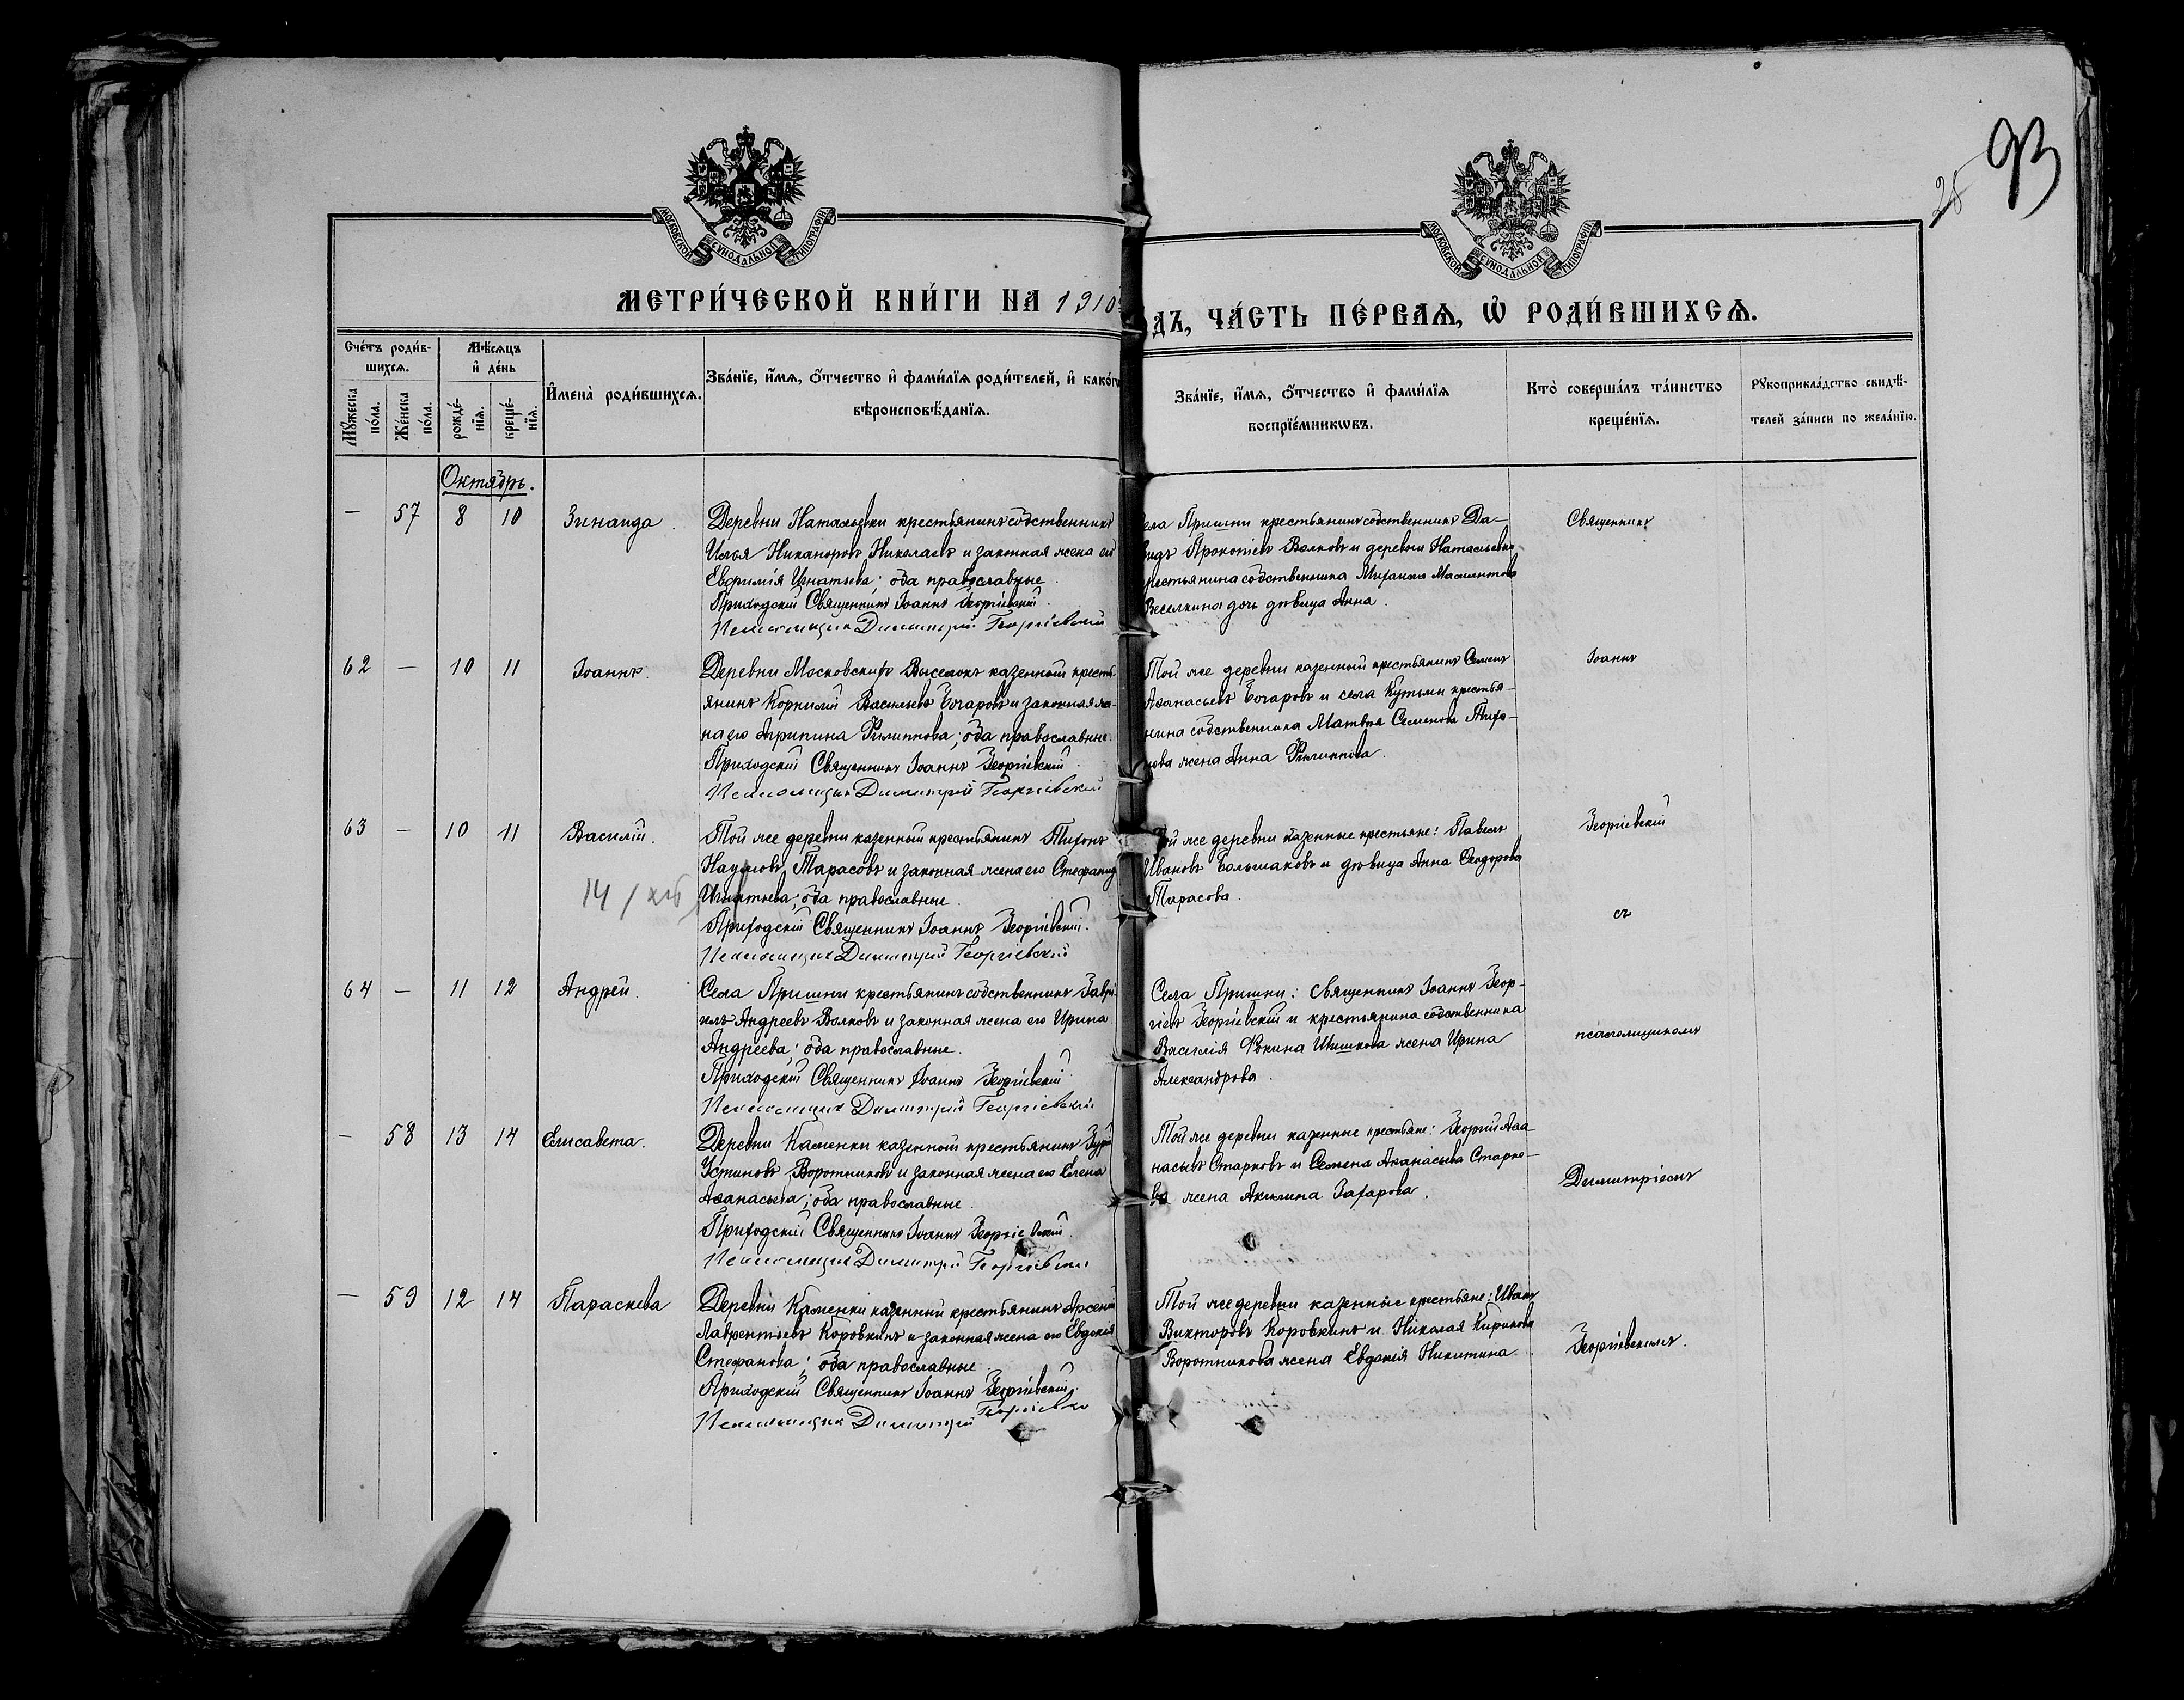 93
28
МОСКОВСКОЙ СУНОДАЛЬНОЙ ТИПОГРАФІИ
МОСКОВСКОЙ СУНОДАЛЬНОЙ ТИПОГРАФІИ
МЕТРИ́ЧЕСКОЙ КНИ́ГИ НА 1910
ДЪ, ЧА́СТЬ ПЕ́РВАѦ, Ѡ РОДИ́ВШИХСѦ.
Сче́тъ роди́в-
шихсѧ.
Мꙋ́жеска по́ла.
Же́нска по́ла.
Мѣ́сѧцъ
и҆ де́нь
рожде́-
нїѧ.
креще́-
нїѧ.
И҆мена̀ роди́вшихсѧ.
Зва́нїе, и҆́мѧ, ѻ҆́тчество и҆ фами́лїѧ роди́телей, и҆ како́гѡ
вѣроисповѣ́данїѧ.
Зва́нїе, и҆́мѧ, ѻ҆́тчество и҆ фами́лїѧ
воспрїе́мникѡвъ.
Кто̀ соверша́лъ та́инство
креще́нїѧ.
Рꙋкоприкла́дство свидѣ́-
телей за́писи по жела́нїю.
Октябрь.
— 57 8 10 Зинаида.
Деревни Натальевки крестьянинъ собственникъ
Илья Никаноровъ Николаевъ и законная жена его
Евфимія Игнатьева; оба православные.
Приходскій Священникъ Іоаннъ Георгіевскій.
Псаломщикъ Димитрій Георгіевскій
села Пришни крестьянинъ собственникъ Да-
видъ Прокопіевъ Волковъ и деревни Натальевки
крестьянина собственника Михаила
Веселкина дочь дѣвица Анна.
Священникъ
62 — 10 11 Іоаннъ.
Деревни Московскихъ Выселокъ казенный кресть-
янинъ Корнилій Васильевъ Бочаровъ и законная же-
на его Агрипина Филиппова; оба православные.
Приходскій Священникъ Іоаннъ Георгіевскій.
Псаломщикъ Димитрій Георгіевскій
Той же деревни казенный крестьянинъ Семенъ
Аѳанасьевъ Бочаровъ и села Кутьмы крестья-
нина собственника Матвѣя Семенова Тихо-
нова жена Анна Филиппова.
Іоаннъ
63 — 10 11 Василій.
Той же деревни казенный крестьянинъ Тихонъ
Наумовъ Тарасовъ и законная жена его Стефанида
Игнатьева; оба православные.
Приходскій Священникъ Іоаннъ Георгіевскій.
Псаломщикъ Димитрій Георгіевскій
14 /
Той же деревни казенные крестьяне: Павелъ
Ивановъ Большаковъ и дѣвица Анна Ѳеодорова
Тарасова.
Георгіевскій
съ
64 — 11 12 Андрей.
Села Пришни крестьянинъ собственникъ Гаврі-
илъ Андреевъ Волковъ и законная жена его Ирина
Андреева; оба православные.
Приходскій Священникъ Іоаннъ Георгіевскій.
Псаломщикъ Димитрій Георгіевскій
Села Пришни: священникъ Іоаннъ Геор-
гіевъ Георгіевскій и крестьянина собственника
Василія Фокина Шишкова жена Ирина
Александрова.
псаломщикомъ
— 58 13 14 Елисавета.
Деревни Каменки казенный крестьянинъ Гурій
Устиновъ Воротниковъ и законная жена его Елена
Аѳанасьева; оба православные.
Приходскій Священникъ Іоаннъ Георгіевскій.
Псаломщикъ Димитрій Георгіевскій
Той же деревни казенные крестьяне: Георгій Аѳа
насьевъ Старковъ и Семена Аѳанасьева Старко-
ва жена Акилина Захарова.
Димитріемъ
— 59 12 14 Параскева
Деревни Каменки казенный крестьянинъ Арсеній
Лаврентьевъ Коровкинъ и законная жена его Евдокія
Стефанова; оба православные.
Приходскій Священникъ Іоаннъ Георгіевскій.
Псаломщикъ Димитрій Георгіевскій
Той же деревни казенные крестьяне: Иванъ
Викторовъ Коровкинъ и Николая Кирикова
Воротникова жена Евдокія Никитина.
Георгіевскимъ.